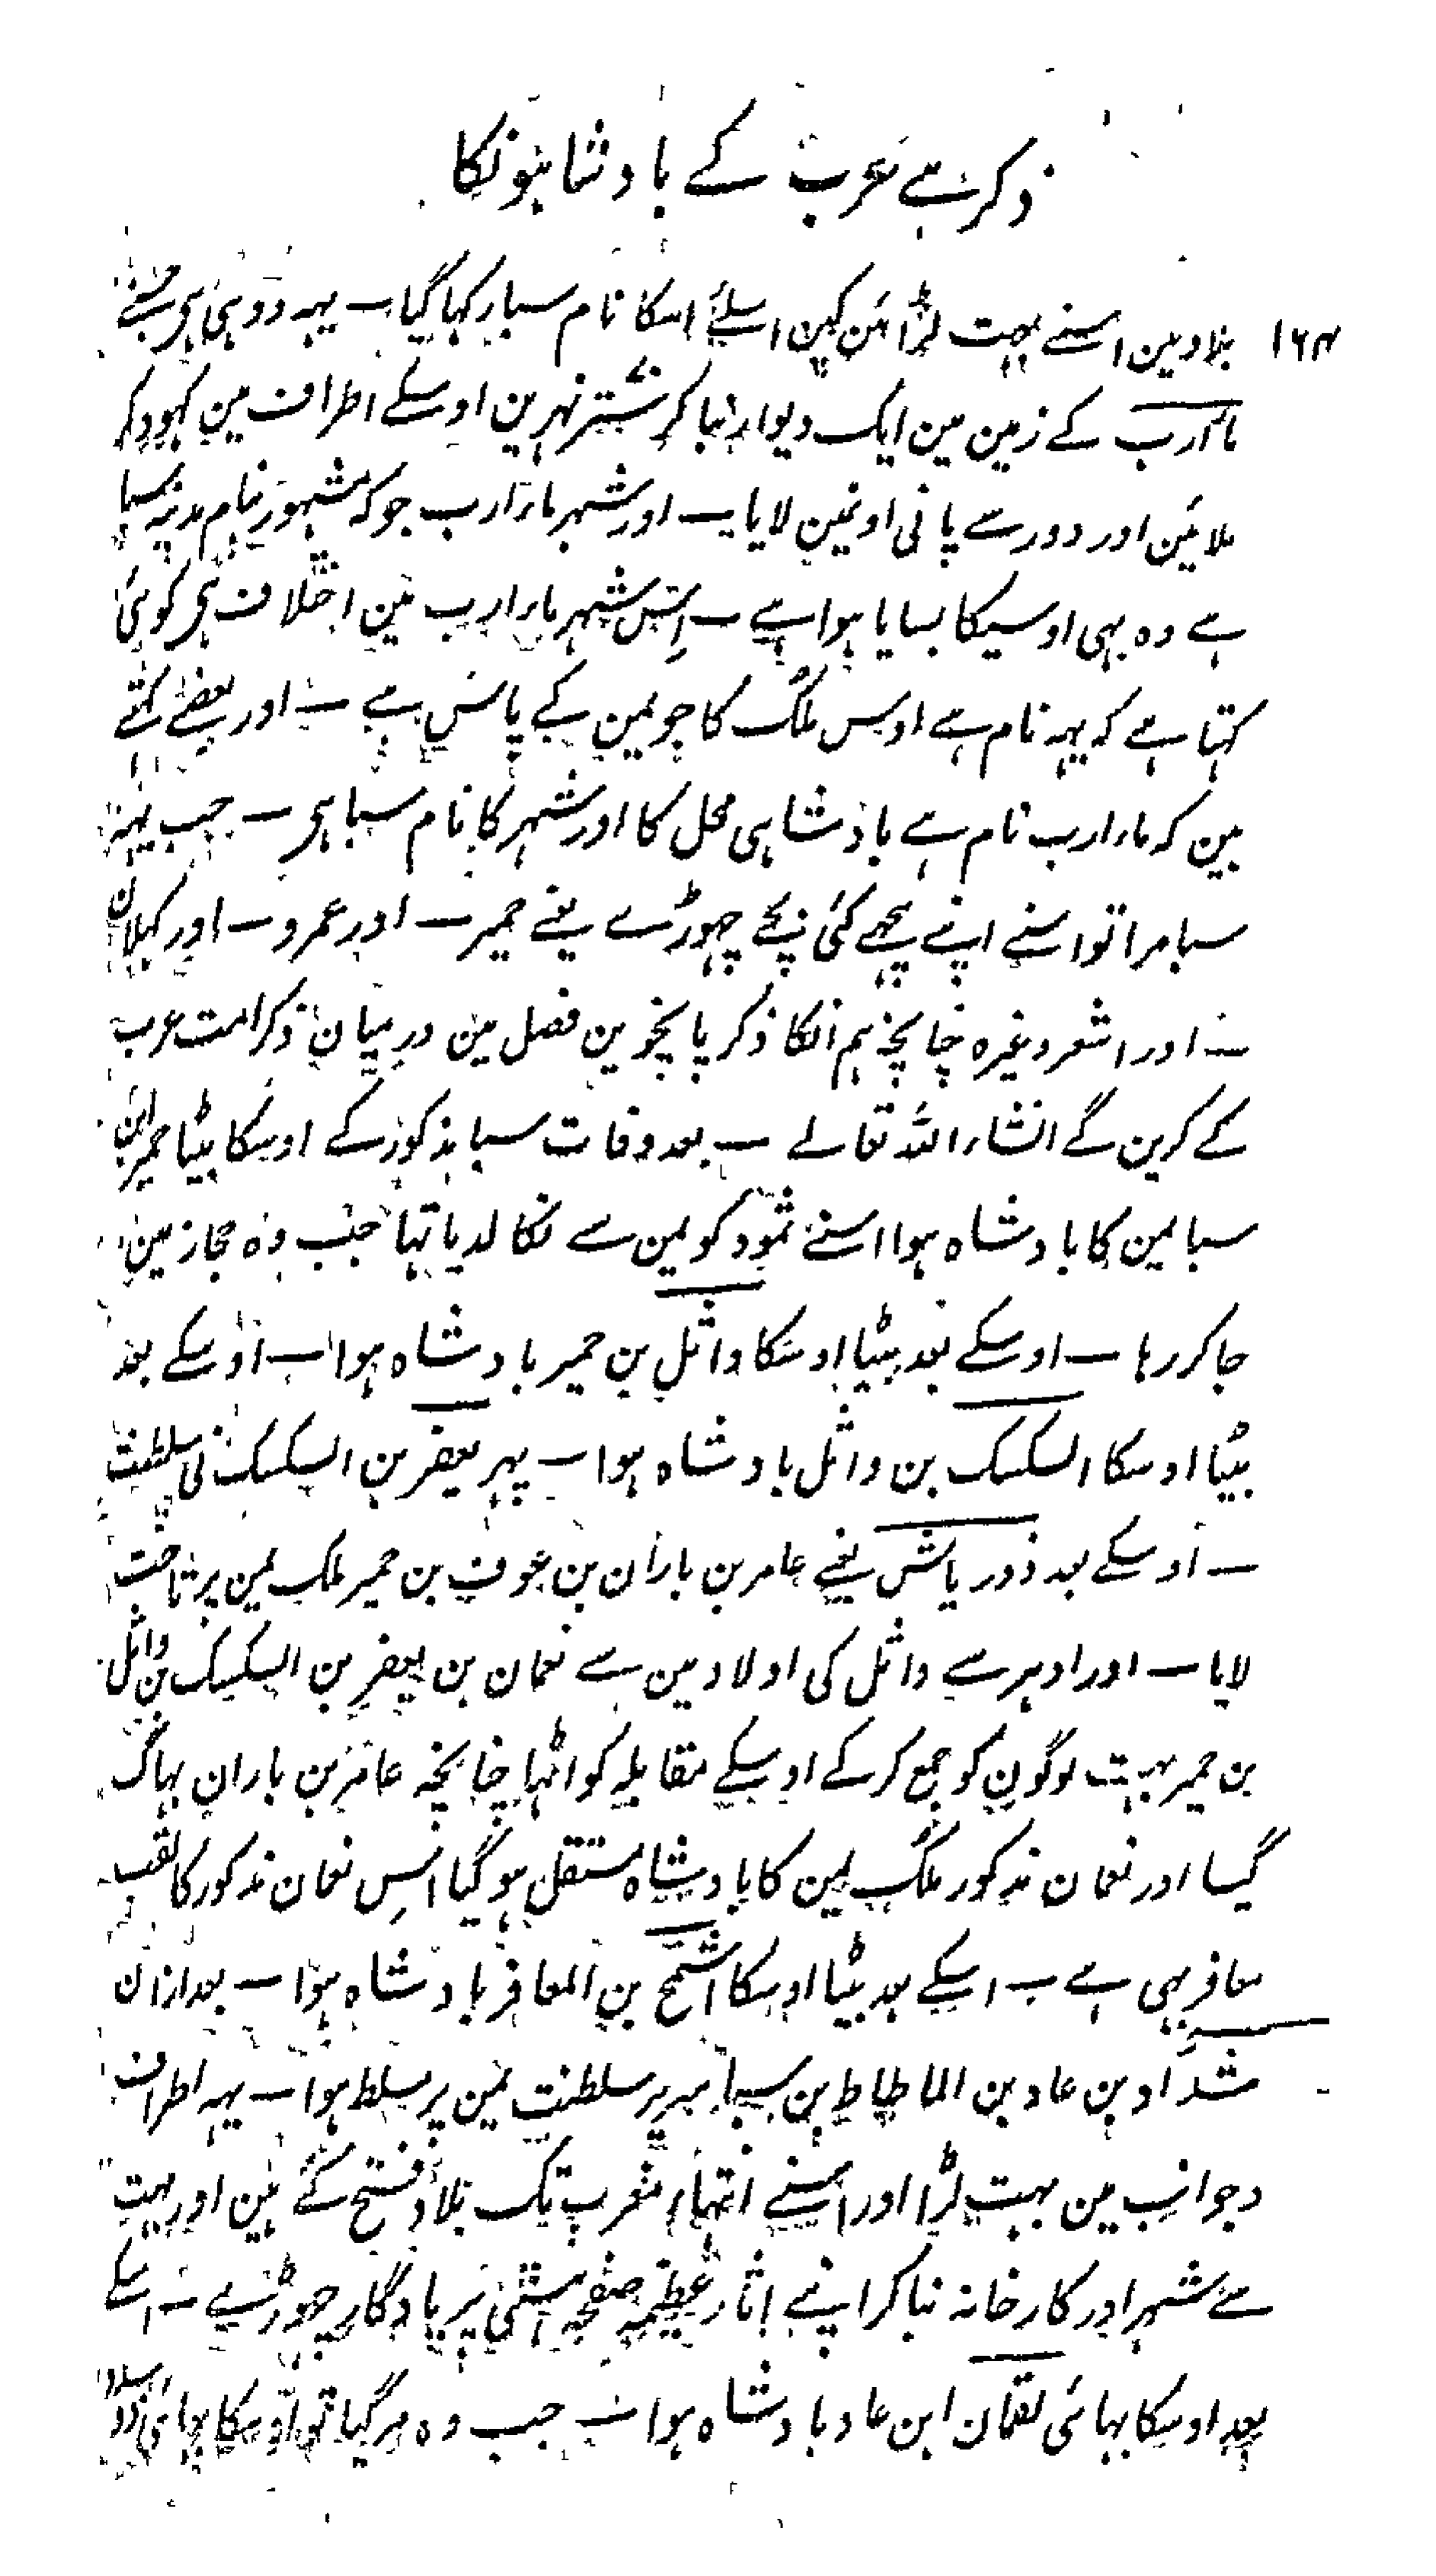 ذکر ہے عرب کے بادشاہونکا
۱۶۴ بلاد مین اسنے بہت لڑائین کین اسلئے اسکا نام سبا رکہا گیا ۔ یہہ وہ ہی ہی جسنے
ماءرب کے زمین مین ایک دیوار بنا کر ستر نہرین اوسکے اطراف مین کہود کر
ملائین اور دور سے پانی اونمین لایا ۔ اور شہر ماءرب جو کہ مشہور بنام مدینہ سبا
ہے وہ بہی اوسیکا بسایا ہوا ہے ۔ اِس شہر ماءرب مین اختلاف ہی کوئی
کہتا ہے کہ یہہ نام ہے اوس ملک کا جو یمن کے پاس ہے ۔ اور بعضے کہتے
ہین کہ ماءرب نام ہے بادشاہی محل کا اور شہر کا نام سبا ہی ۔ جب یہہ
سبا مرا تو اسنے اپنے پیچہے کئی بچے چہوڑے یعنے حمیر ۔ اور عمرو ۔ اور کہلان
۔ اور اشعر وغیرہ چنانچہ ہم انکا ذکر پانچوین فصل مین درمیان ذکر امت عرب
کے کرین گے انشاء اللہ تعالے ۔ بعد وفات سبا مذکور کے اوسکا بیٹا حمیر ابن
سبا یمن کا بادشاہ ہوا اسنے ثمود کو یمن سے نکالدیا تہا جب وہ حجاز مین
جا کر رہا ۔ اوسکے بعد بیٹا اوسکا واثل بن حمیر بادشاہ ہوا ۔ اوسکے بعد
بیٹا اوسکا السکسک بن واثل بادشاہ ہوا ۔ پہر یعفر بن السکسک نی سلطنت
۔ اوسکے بعد ذو ریاش یعنے عامر بن باران بن عوف بن حمیر ملک یمن پر تاخت
لایا ۔ اور اودہر سے واثل کی اولاد مین سے نعمان بن یعفر بن السکسک بن واثل
بن حمیر بہت لوگون کو جمع کر کے اوسکے مقابلہ کو اٹہا چنانچہ عامر بن باران بہاگ
گیا اور نعمان مذکور ملک یمن کا بادشاہ مستقل ہو گیا اس نعمان مذکور کا لقب
معافر بہی ہے ۔ اسکے بعد بیٹا اوسکا اشمح بن المعافر بادشاہ ہوا ۔ بعد ازان
شداد بن عاد بن الماطاط بن سبا سریر سلطنت یمن پر مسلط ہوا ۔ یہہ اطراف
و جوانب مین بہت لڑا اور اسنے انتہاء مغرب تک بلاد فتح کئے ہین اور بہت
سے شہر اور کارخانہ بنا کر اپنے اثار عظیمہ صفحہ ہستی پر یادگار چہوڑے ۔ اسکے
بعد اوسکا بہائی لقمان ابن عاد بادشاہ ہوا ۔ جب وہ مر گیا تو اوسکا بہائی ذو